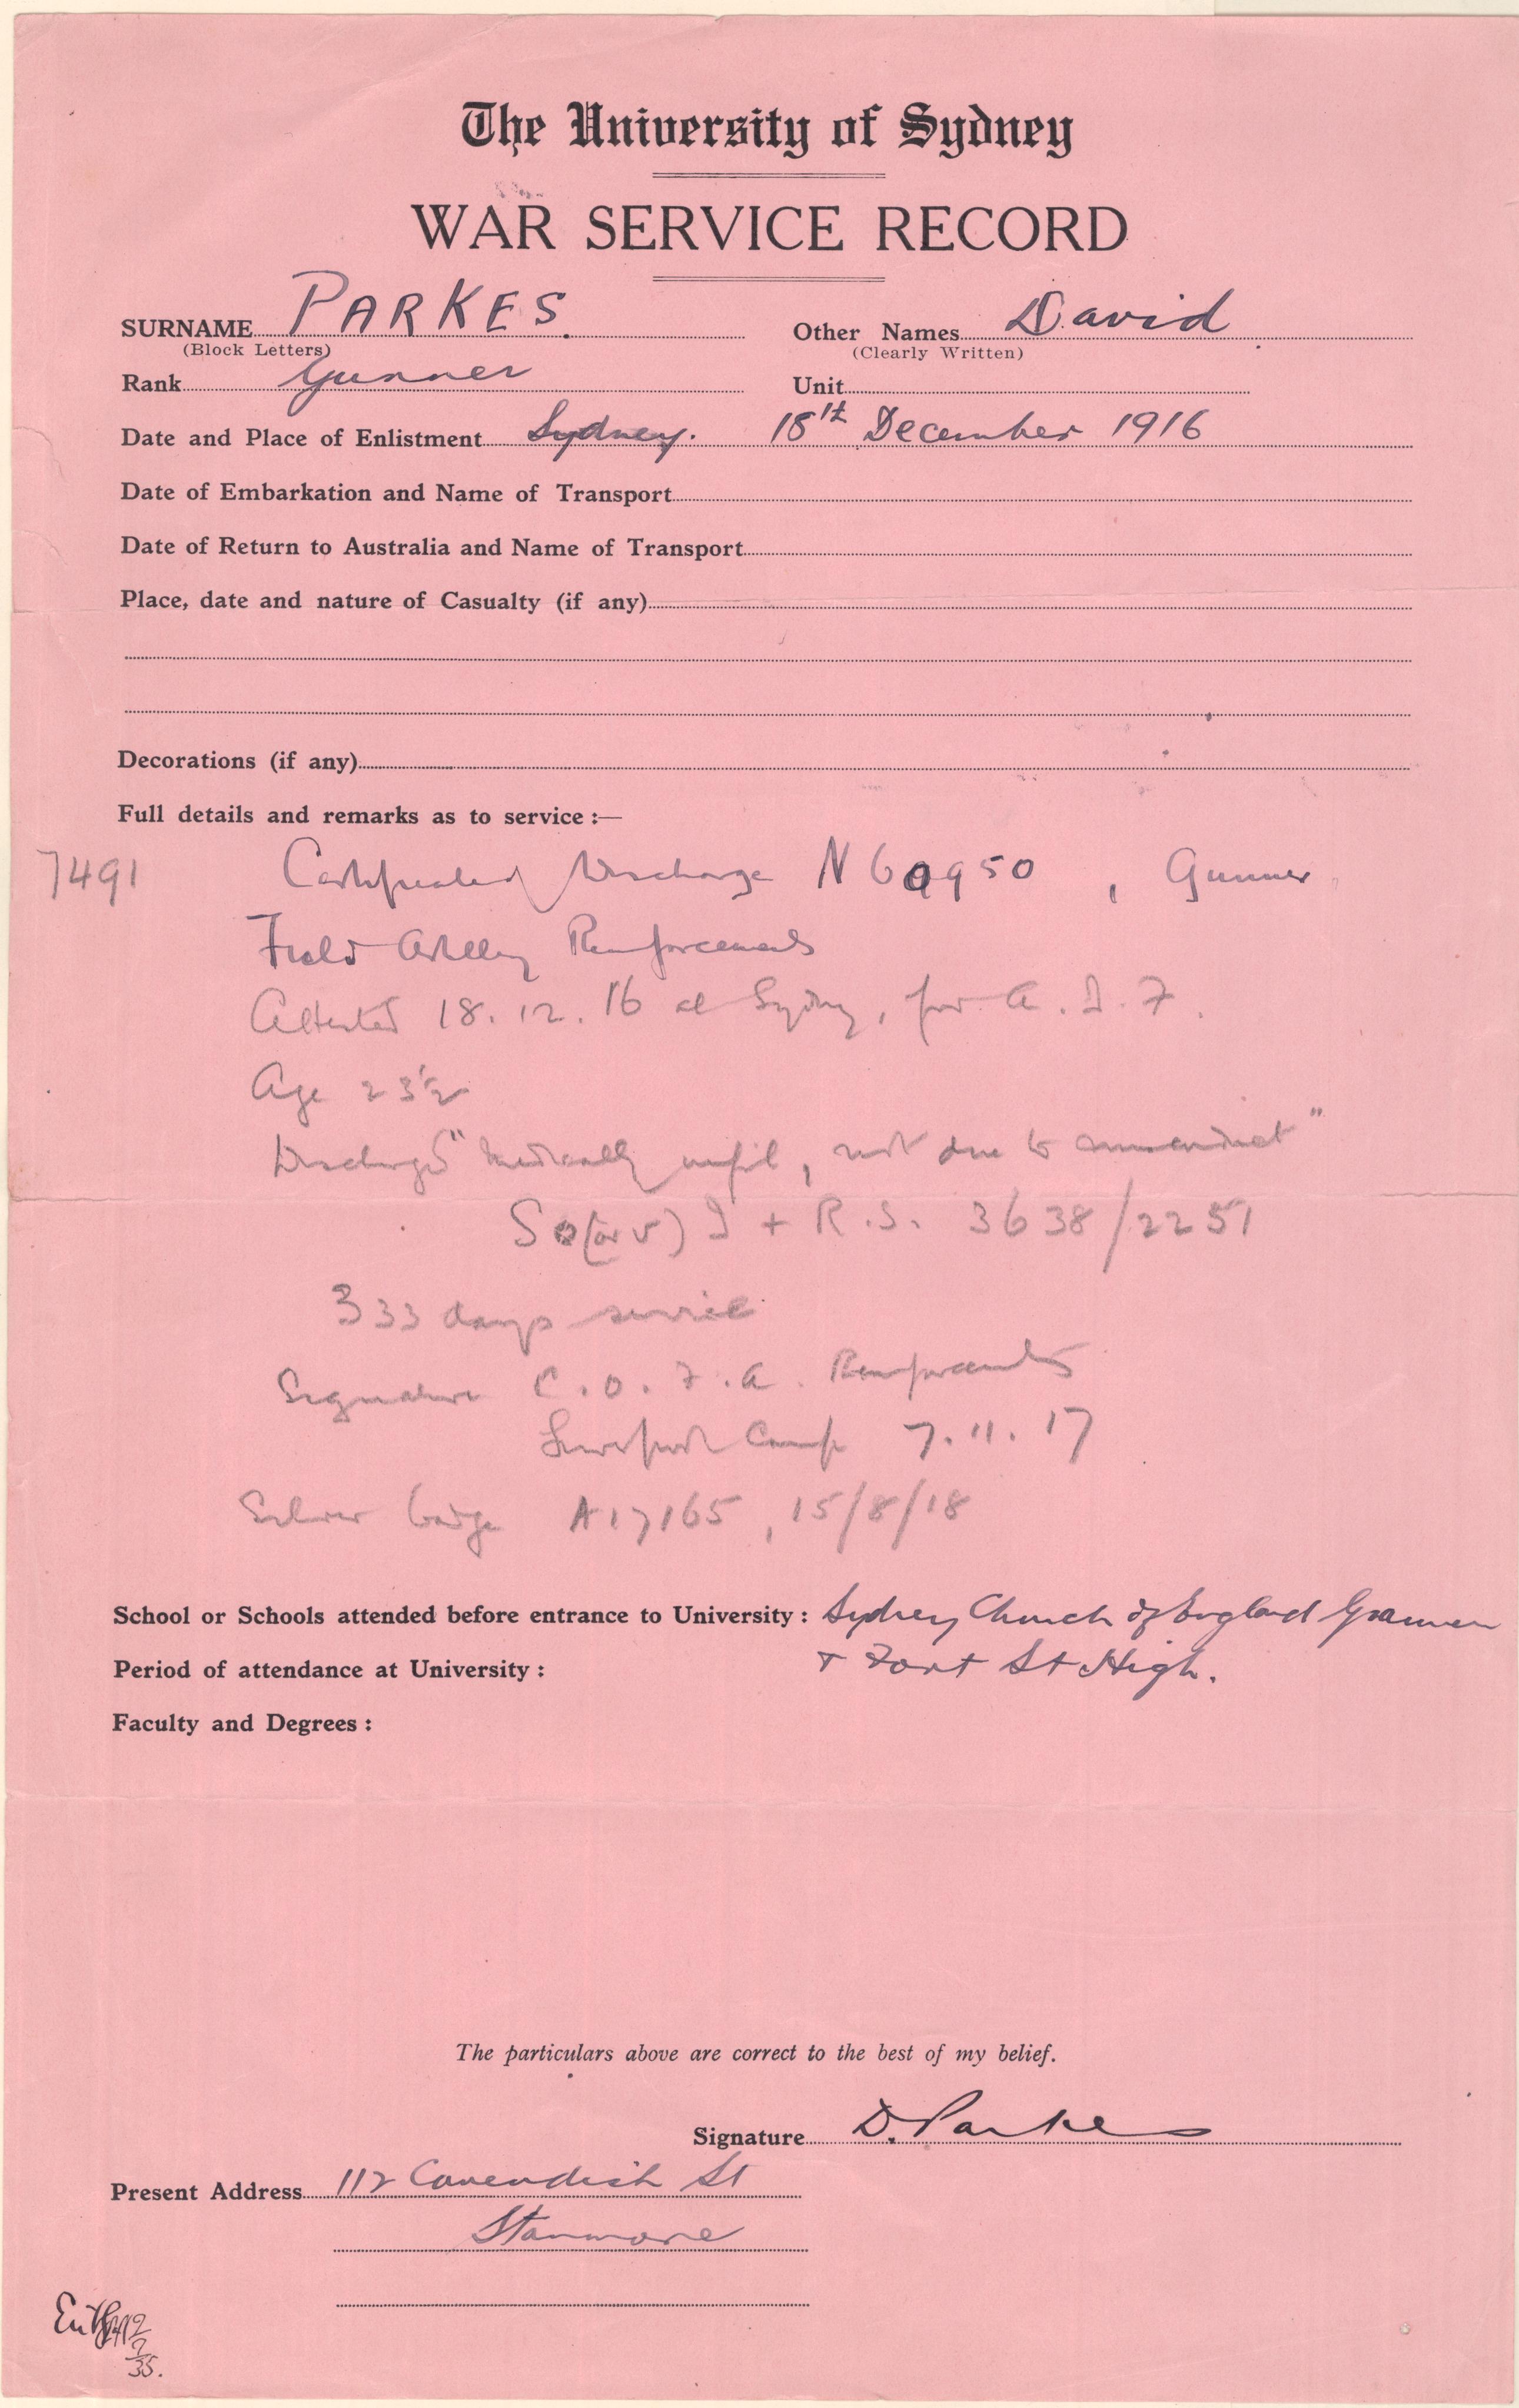 The University of Sydney
WAR SERVICE RECORD
SURNAME PARKES. Other Names David
(Block Letters) (Clearly Written)
Rank Gunner Unit
Date and Place of Enlistment Sydney. 18th December 1916
Date of Embarkation and Name of Transport
Date of Return to Australia and Name of Transport
Place, date and nature of Casualty (if any)
Decorations (if any)
Full details and remarks as to service :—
7491 Discharge N 60950, Gunner
Field Artillery Reinforcements
Attested 18.12.16 at Sydney, for A.I.F.
Age 23½
Discharged "medically unfit, not due to misconduct"
So (or v) I + R.S. 3638/2251
333 days service
Signature C.O.F.A. Reinforcements
Liverpool Camp 7.11.17
Silver badge A17165, 15/8/18
School or Schools attended before entrance to University : Sydney Church of England Grammar
Period of attendance at University : + Fort St High.
Faculty and Degrees :
The particulars above are correct to the best of my belief.
Signature D. Parkes
Present Address 112 Cavendish St
Stanmore
35.